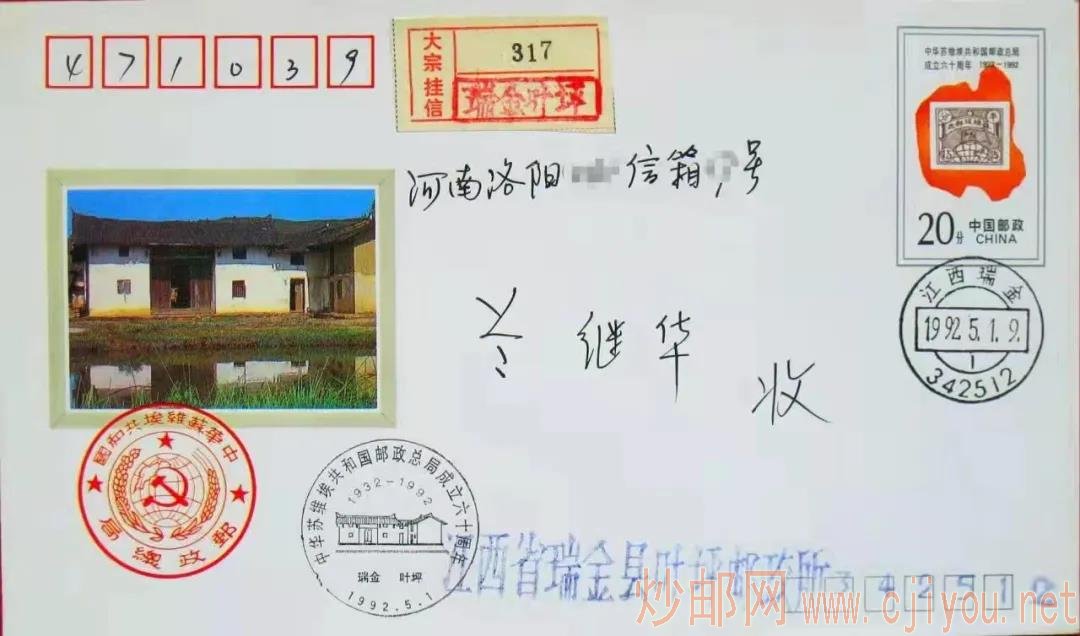 471039
大宗挂信
317
瑞金叶坪
中华苏维埃共和国邮政总局
成立六十周年 1932-1992
20分 中国邮政
CHINA
河南洛阳 信箱 号
江西瑞金
1992.5.1.9.
1
342512
继华 收
中華蘇維埃共和國
郵政總局
中华苏维埃共和国邮政总局成立六十周年
1932-1992
瑞金 叶坪
1992.5.1
江西省瑞金县叶坪邮政所
342512
炒邮网 www.cjiyou.net